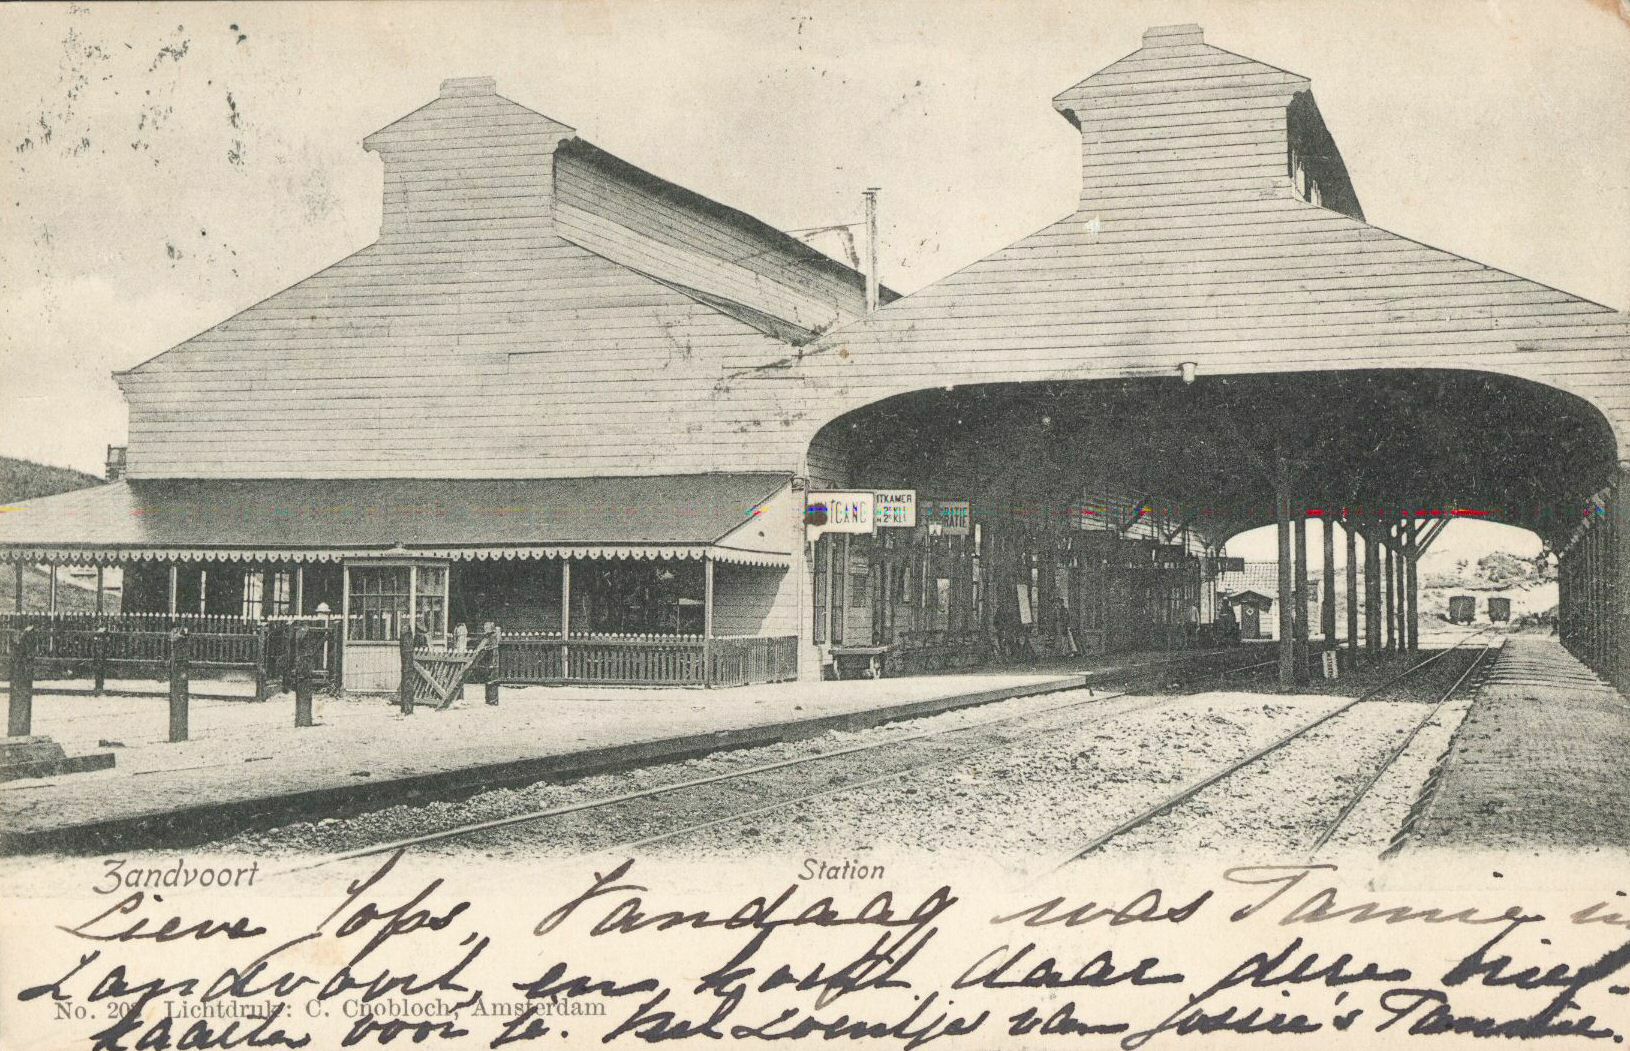 UITGANG
TKAMER
2e KL.
RATIE
Zandvoort
Station
Lieve Jops, Vandaag was Tannie in
Zandvoort, en koopt daar deze brief-
kaarten voor je. Het zoentje van Jossie's Tannie.
No. 202 Lichtdruk: C. Cnobloch, Amsterdam